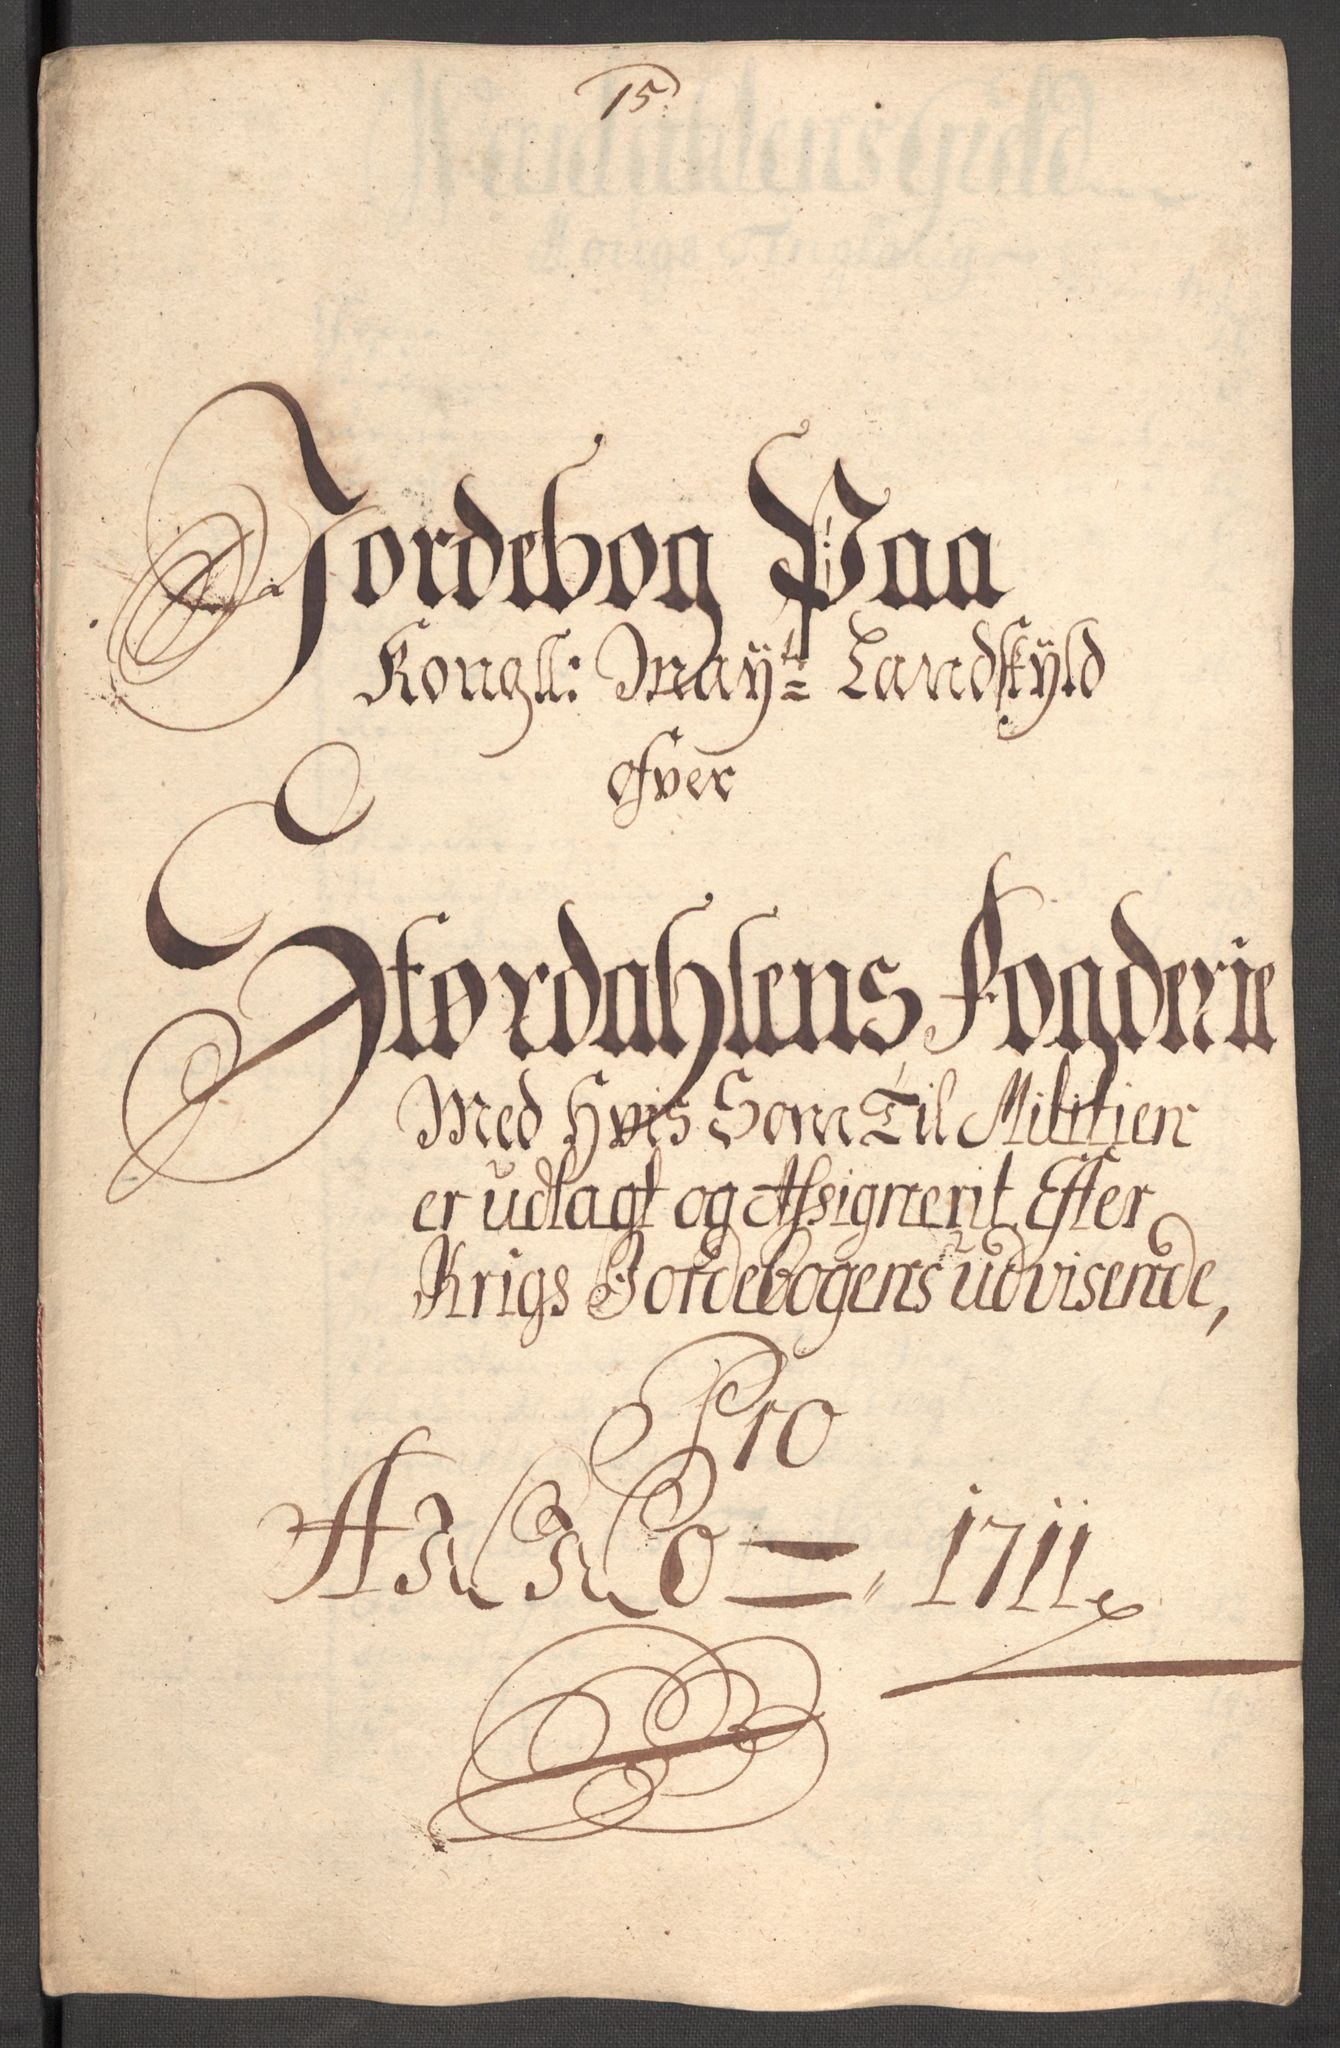 15.
Jordebog Paa
Kongll: Mayt: Landskyld
ofver
Størdahlens Fogderie
Med Hvis Som Til Militien
er udlagt og Assignerit Efter
Krigs Jordebogens udvisende,
Pro
ANNO =, 1711